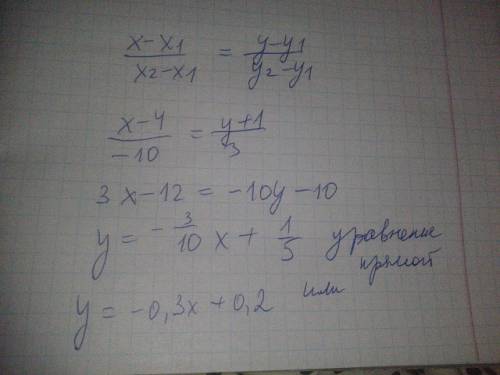 x-x₁/x₂-x₁ = y-y₁/y₂-y₁
x-4/-10 = y+1/3
3x-12 = -10y-10
y = -3/10 x + 1/5 уравнение прямой
или
y = -0,3x+0,2